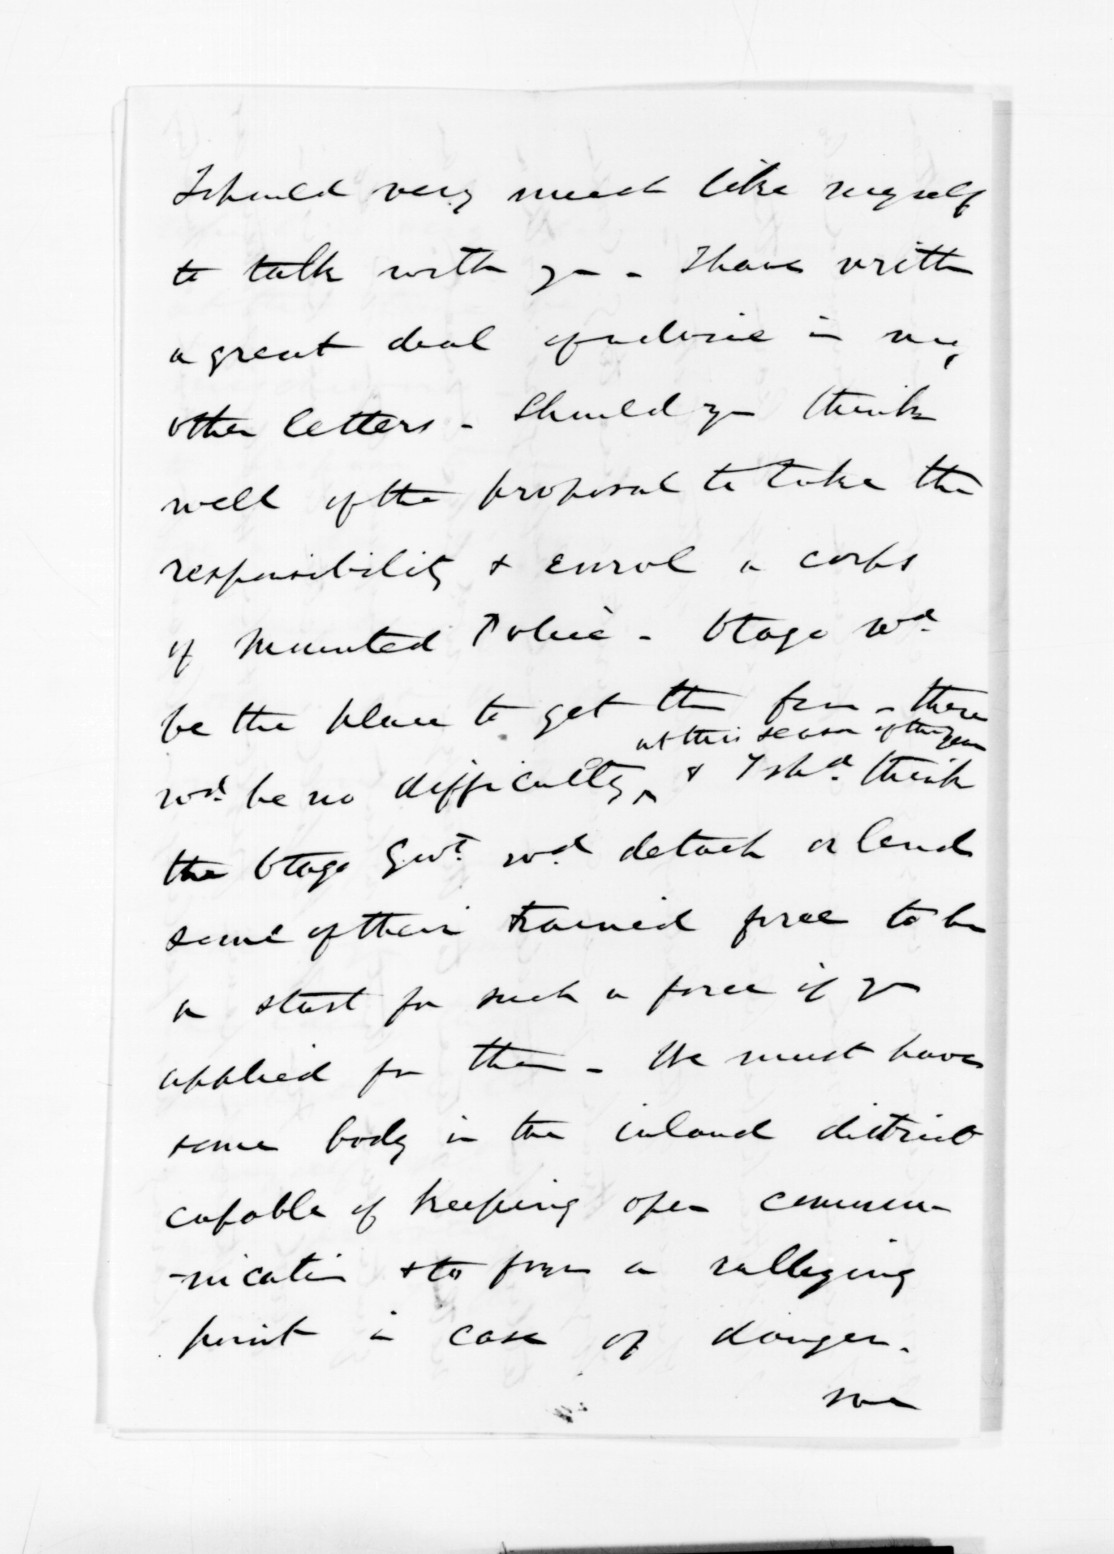 I should very much like myself
to talk with you - I have written
a great deal of advice in my
other letters - Should you think
well of the proposal to take the
responsibility & enrol a corps
of Mounted Police - Otago wd
be the place to get them from - there
at this season of the year
wd be no difficulty, & I shd think
the Otago Govt wd detach or lend
some of their trained force to be
a start for such a force if you
applied for them - We must have
some body in the inland district
capable of keeping open commu-
-nication & to form a rallying
point in case of danger.
we